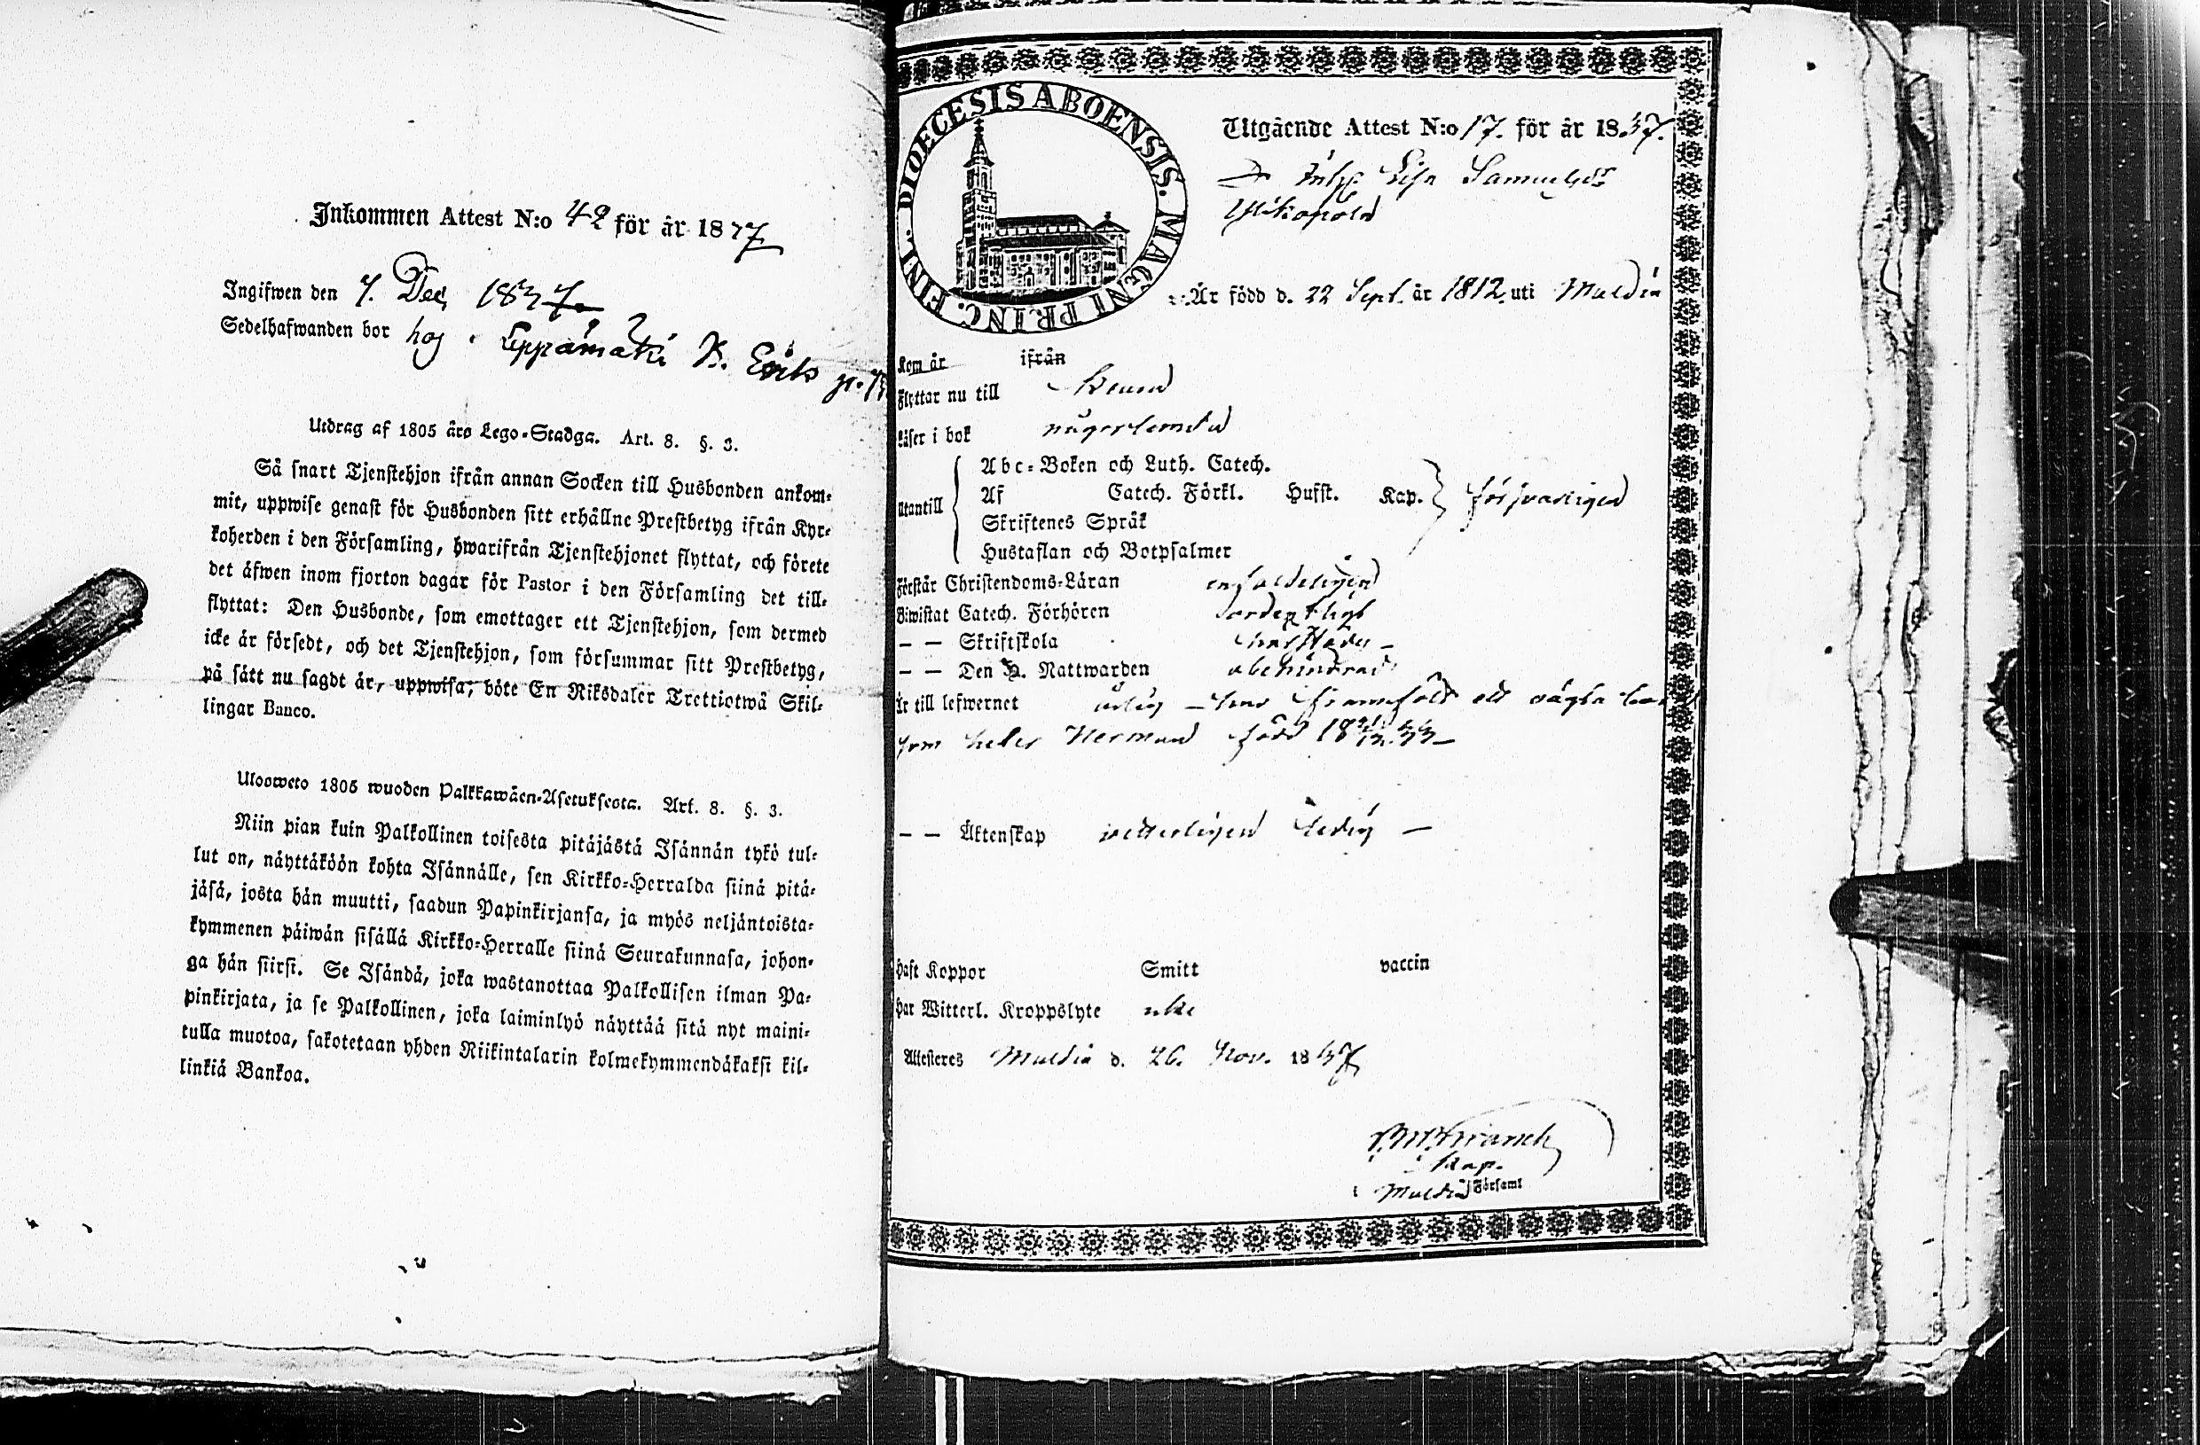 Inkommen Attest N:o 42 för år 1837
Ingifwen den 7. Dec. 1837.
Sedelhafwanden bor hos Leppämäki B. Eriks
Utdrag af 1805 års Lego-Stadga. Art. 8. §. 3.
Så snart Tjenstehjon ifrån annan Socken till Husbonden ankom-
mit, uppwise genast för Husbonden sitt erhållne Prestbetyg ifrån Kyr-
koherden i den Församling, hwarifrån Tjenstehjonet flyttat, och förete
det äfwen inom fjorton dagar för Pastor i den Församling det till-
flyttat: Den Husbonde, som emottager ett Tjenstehjon, som dermed
icke är försedt, och det Tjenstehjon, som försummar sitt Prestbetyg,
på sätt nu sagdt är, uppwisa, böte En Riksdaler Trettiotwå Skil-
lingar Banco.
Ulosweto 1805 wuoden Palkkawäen-Asetuksesta. Art. 8. §. 3.
Niin pian kuin Palkollinen toisesta pitäjästä Isännän tykö tul-
lut on, näyttäköön kohta Isännälle, sen Kirkko-Herralda siinä pitä-
jäsä, josta hän muutti, saadun Papinkirjansa, ja myös neljäntoista-
kymmenen päiwän sisällä Kirkko-Herralle siinä Seurakunnasa, johon-
ga hän siirsi. Se Isändä, joka wastanottaa Palkollisen ilman Pa-
pinkirjata, ja se Palkollinen, joka laiminlyö näyttää sitä nyt maini-
tulla muotoa, sakotetaan yhden Riikintalarin kolmekymmendäkaksi kil-
linkiä Bankoa.
DIOECESIS ABOENSIS. MAGNI PRINC. FINL.
Utgående Attest N:o 17. för år 1837.
Inh. Lisa Samuelsdr
Är född d. 22 Sept. år 1812. uti Muldia
Kom år ifrån
Flyttar nu till Keuru
Läser i bok någorlunda
Utantill
Abc-Boken och Luth. Catech.
Af Catech. Förkl. Husst. Kap. försvarligen
Skriftenes Språk
Hustaflan och Botpsalmer
Förstår Christendoms-Läran enfaldeligen
Biwistat Catech. Förhören ordentligt
— — Skriftskola
— — Den H. Nattwarden obehindrad
Är till lefwernet ärlig – har framfödt ett oägta barn
som heter Herman född 18 33 –
— — Äktenskap vetterligen ledig —
Haft Koppor Smitt vaccin
Har Witterl. Kroppslyte icke
Attesteres Muldia d. 26. Nov. 1837
Kap.
i Muldia Församl